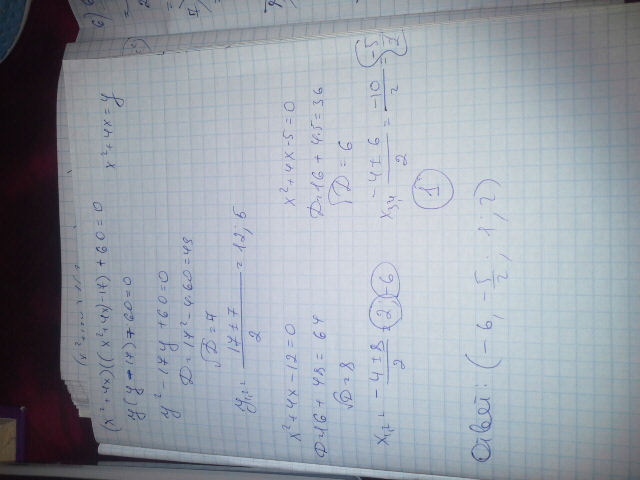 (x²+4x)((x²+4x)-17)+60=0 x²+4x=y
y(y-17)+60=0
y²-17y+60=0
D=17²-4·60=49
√D=7
y₁,₂= (17±7)/2 =12; 5
x²+4x-12=0 x²+4x-5=0
D=16+48=64 D=16+4·5=36
√D=8 √D=6
x₁,₂= (-4±8)/2 = 2; -6 x₃,₄= (-4±6)/2 = -10/2 = -5
1
Ответ: (-6, -5/2; 1; 2)